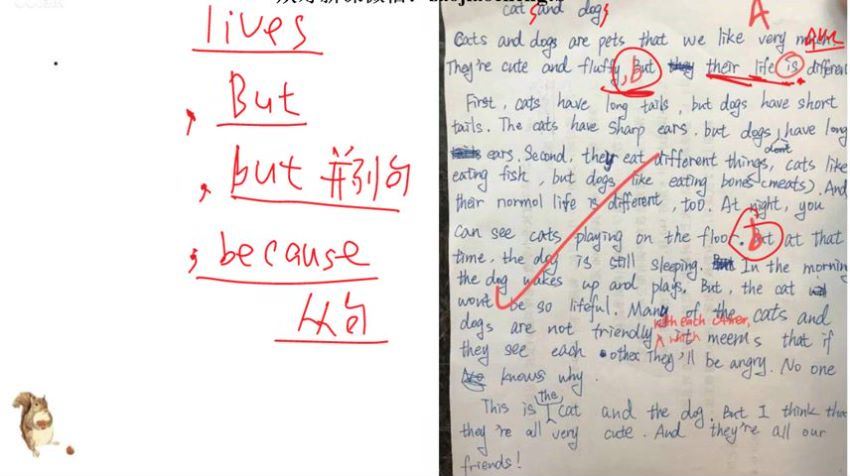 lives
, But
, but 并列句
, because
从句
cats and dogs
A
Cats and dogs are pets that we like very
They're cute and fluffy, But their life is different
b
First, cats have long tails, but dogs have short
tails. The cats have sharp ears, but dogs have long
don't
ears. Second, they eat different things, cats like
eating fish, but dogs like eating bones (meats). And
their normol life is different, too. At night, you
can see cats playing on the floor. But at that
b
time, the dog is still sleeping. In the morning
the dog wakes up and plays. But, the cat
wont be so lifeful. Many of the cats and
dogs are not friendly with each other, with meems that if
they see each other They'll be angry. No one
knows why.
This is the cat and the dog. But I think that
they're all very cute. And they're all our
friends!